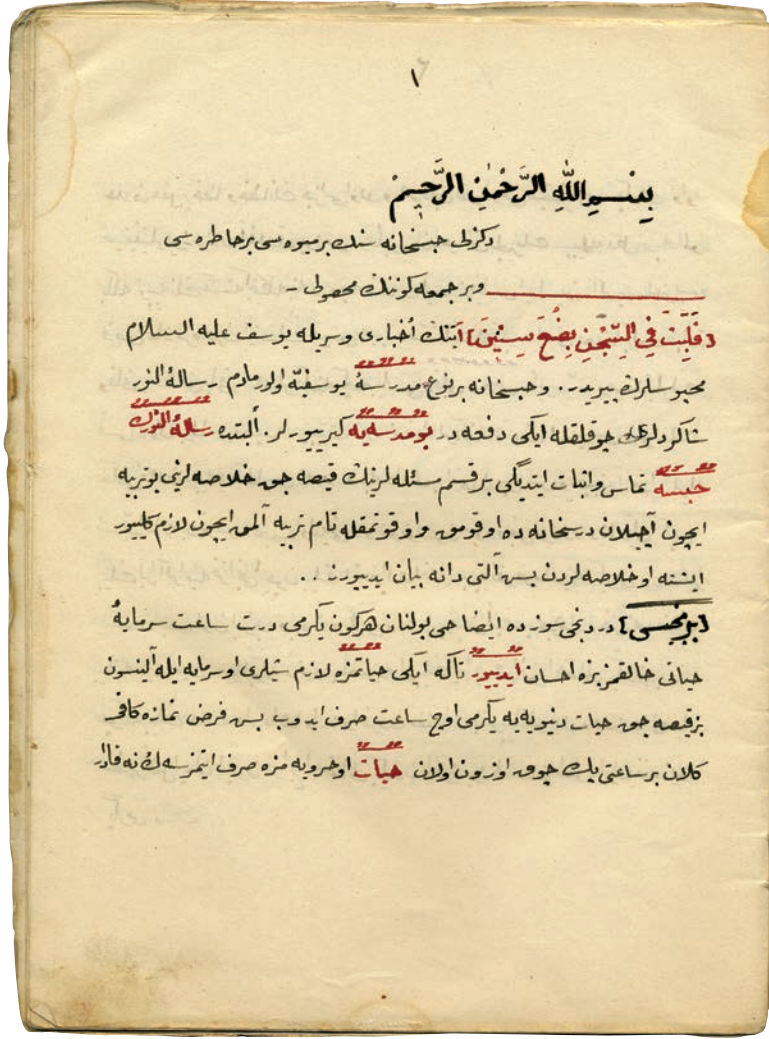 ١
بِسْمِ اللّٰهِ الرَّحْمٰنِ الرَّحِيمْ
دكزلى حبسخانه سنك بر ميوه سى بر خاطره سى
و بر جمعه كوننك محصولى ـ
﴿ فَلَبِثَ فِي السِّجْنِ بِضْعَ سِنِينَ ﴾ آيتنك أخبارى و سريله يوسف عليه السلام
محبوسلرك پيريدر. و حبسخانه بر نوع مدرسهٔ يوسفيّه اولور مادم رسالهٔ النور
شاكردلرى چوقلقله ايكى دفعه در بو مدرسه يه كيرييورلر. ألبته ده رسالهٔ النورك
حبسه تماس و اثبات ايتديگى بر قسم مسئله لرينك قيصه جق خلاصه لرينى بو تربيه
ايچون آچيلان درسخانه ده اوقومق و اوقوتمقله تام تربيه آلمق ايچون لازم كلييور
ايشته او خلاصه لردن بس آلتى دانه بيان ايدييورز . .
﴿ برنجيسى ﴾ دردنجى سوزده ايضاحى بولنان هركون يكرمى درت ساعت سرمايهٔ
حياتى خالقمز بزه احسان ايدييور تاكه ايكى حياتمزه لازم شيلرى او سرمايه ايله آلينسون
بز قيصه جق حيات دنيويه يه يكرمى اوچ ساعت صرف ايدوب بس فرض نمازه كافى
كلان بر ساعتى پك چوق اوزون اولان حيات اوخرويه مزه صرف ايتمزسه ك نه قادار